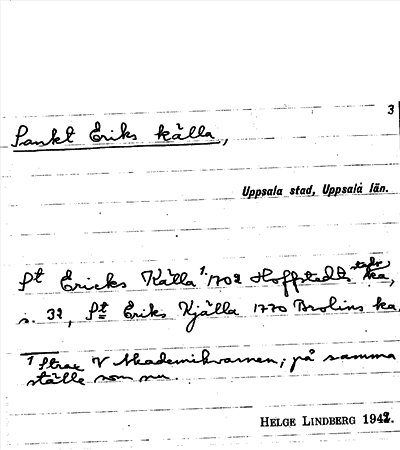 3
Sankt Eriks källa,
Uppsala stad, Uppsala län.
St Ericks Källa¹ 1702 Hoffstedts stads ka,
s. 32, St Eriks Kjälla 1770 Brolins ka.
¹ Strax V Akademikvarnen; på samma
ställe som nu.
HELGE LINDBERG 1942.